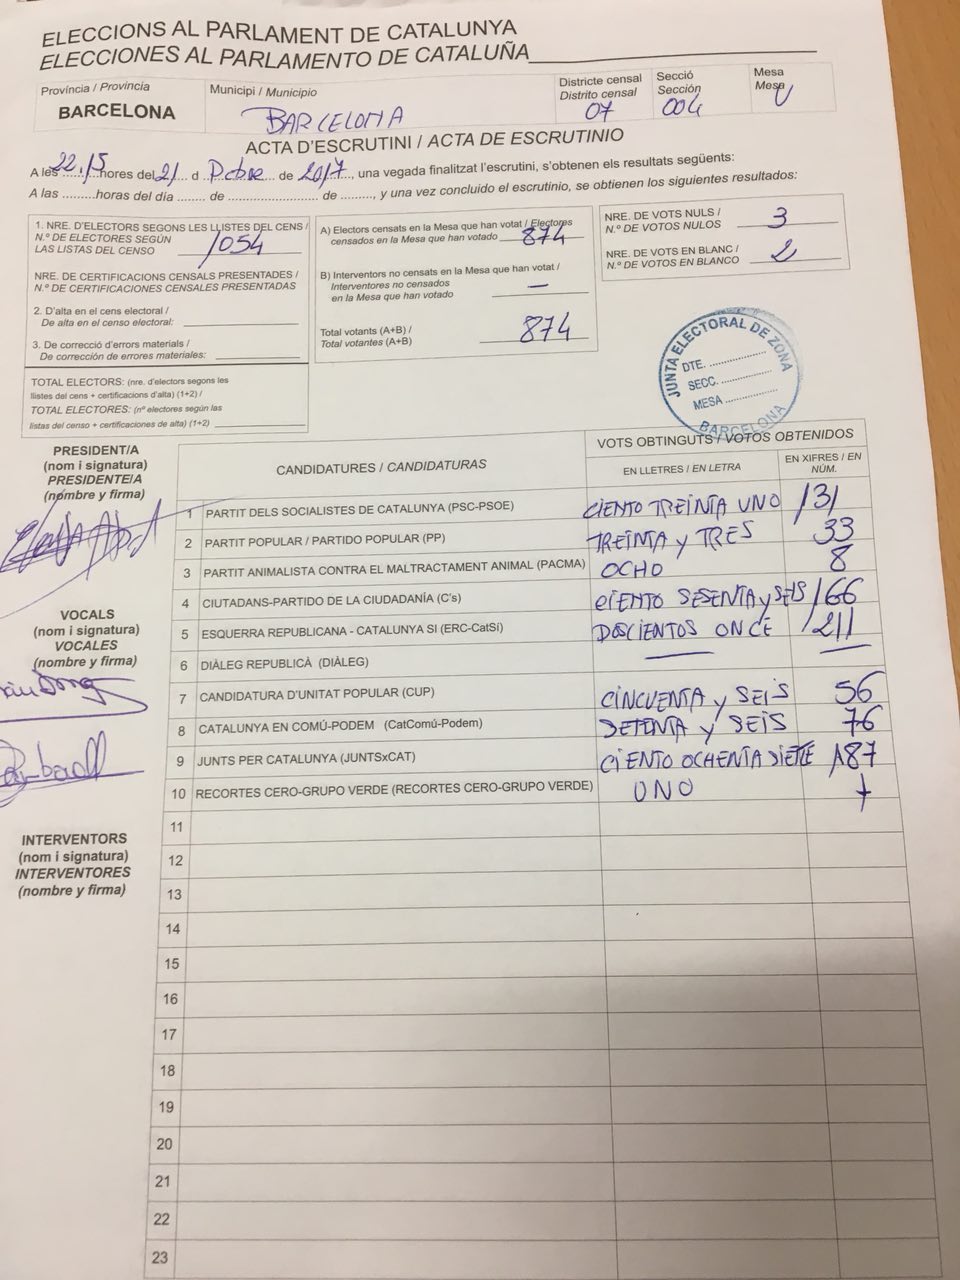 ELECCIONS AL PARLAMENT DE CATALUNYA
ELECCIONES AL PARLAMENTO DE CATALUÑA
Província / Provincia
BARCELONA
Municipi / Municipio
BARCELONA
Districte censal
Distrito censal
07
Secció
Sección
004
Mesa
Mesa
U
ACTA D'ESCRUTINI / ACTA DE ESCRUTINIO
A les 22,15 hores del 21 d Dcbre de 2017, una vegada finalitzat l'escrutini, s'obtenen els resultats següents:
A las .........horas del día ........ de ........................... de ........., y una vez concluido el escrutinio, se obtienen los siguientes resultados:
1. NRE. D'ELECTORS SEGONS LES LLISTES DEL CENS /
N.º DE ELECTORES SEGÚN
LAS LISTAS DEL CENSO 1054
NRE. DE CERTIFICACIONS CENSALS PRESENTADES /
N.º DE CERTIFICACIONES CENSALES PRESENTADAS
2. D'alta en el cens electoral /
De alta en el censo electoral:
3. De correcció d'errors materials /
De corrección de errores materiales:
TOTAL ELECTORS: (nre. d'electors segons les
llistes del cens + certificacions d'alta) (1+2) /
TOTAL ELECTORES: (nº electores según las
listas del censo + certificaciones de alta) (1+2)
A) Electors censats en la Mesa que han votat / Electores
censados en la Mesa que han votado 874
B) Interventors no censats en la Mesa que han votat /
Interventores no censados
en la Mesa que han votado —
Total votants (A+B) /
Total votantes (A+B) 874
NRE. DE VOTS NULS /
N.º DE VOTOS NULOS 3
NRE. DE VOTS EN BLANC /
N.º DE VOTOS EN BLANCO 2
JUNTA ELECTORAL DE ZONA
DTE. ...............
SECC. ...............
MESA ...............
BARCELONA
PRESIDENT/A
(nom i signatura)
PRESIDENTE/A
(nombre y firma)
VOCALS
(nom i signatura)
VOCALES
(nombre y firma)
INTERVENTORS
(nom i signatura)
INTERVENTORES
(nombre y firma)
CANDIDATURES / CANDIDATURAS
VOTS OBTINGUTS / VOTOS OBTENIDOS
EN LLETRES / EN LETRA
EN XIFRES / EN NÚM.
1 PARTIT DELS SOCIALISTES DE CATALUNYA (PSC-PSOE) CIENTO TREINTA UNO 131
2 PARTIT POPULAR / PARTIDO POPULAR (PP) TREINTA y TRES 33
3 PARTIT ANIMALISTA CONTRA EL MALTRACTAMENT ANIMAL (PACMA) OCHO 8
4 CIUTADANS-PARTIDO DE LA CIUDADANÍA (C's) CIENTO SESENTA y SEIS 166
5 ESQUERRA REPUBLICANA - CATALUNYA SI (ERC-CatSí) DOSCIENTOS ONCE 211
6 DIÀLEG REPUBLICÀ (DIÀLEG) — —
7 CANDIDATURA D'UNITAT POPULAR (CUP) CINCUENTA y SEIS 56
8 CATALUNYA EN COMÚ-PODEM (CatComú-Podem) SETENTA y SEIS 76
9 JUNTS PER CATALUNYA (JUNTSxCAT) CIENTO OCHENTA SIETE 187
10 RECORTES CERO-GRUPO VERDE (RECORTES CERO-GRUPO VERDE) UNO 1
11
12
13
14
15
16
17
18
19
20
21
22
23